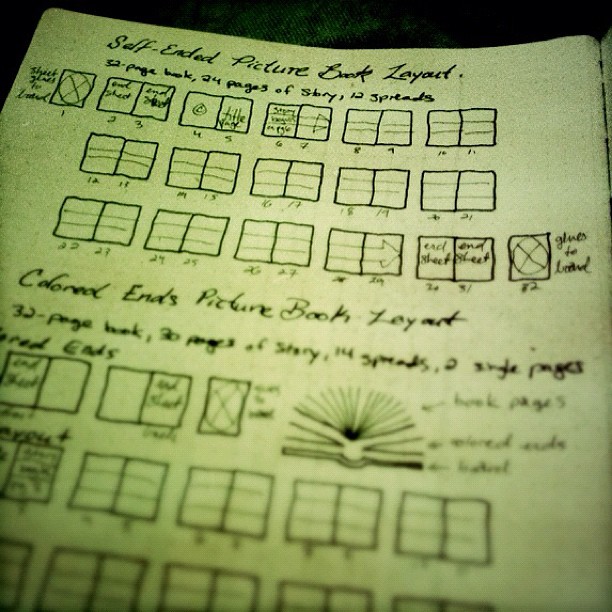 Self-Ended Picture Book Layout.
32-page book, 24 pages of story, 12 spreads
sheet glues to board
end sheet end sheet
© title page
story begins
glues to board
1 2 3 4 5 6 7 8 9 10 11
12 13 14 15 16 17 18 19 20 21
end sheet end sheet
22 23 24 25 26 27 28 29 30 31 32
Colored Ends Picture Book Layout
32-page book, 30 pages of story, 14 spreads, 2 single pages
Ends
end sheet
end sheet
book pages
colored ends
board